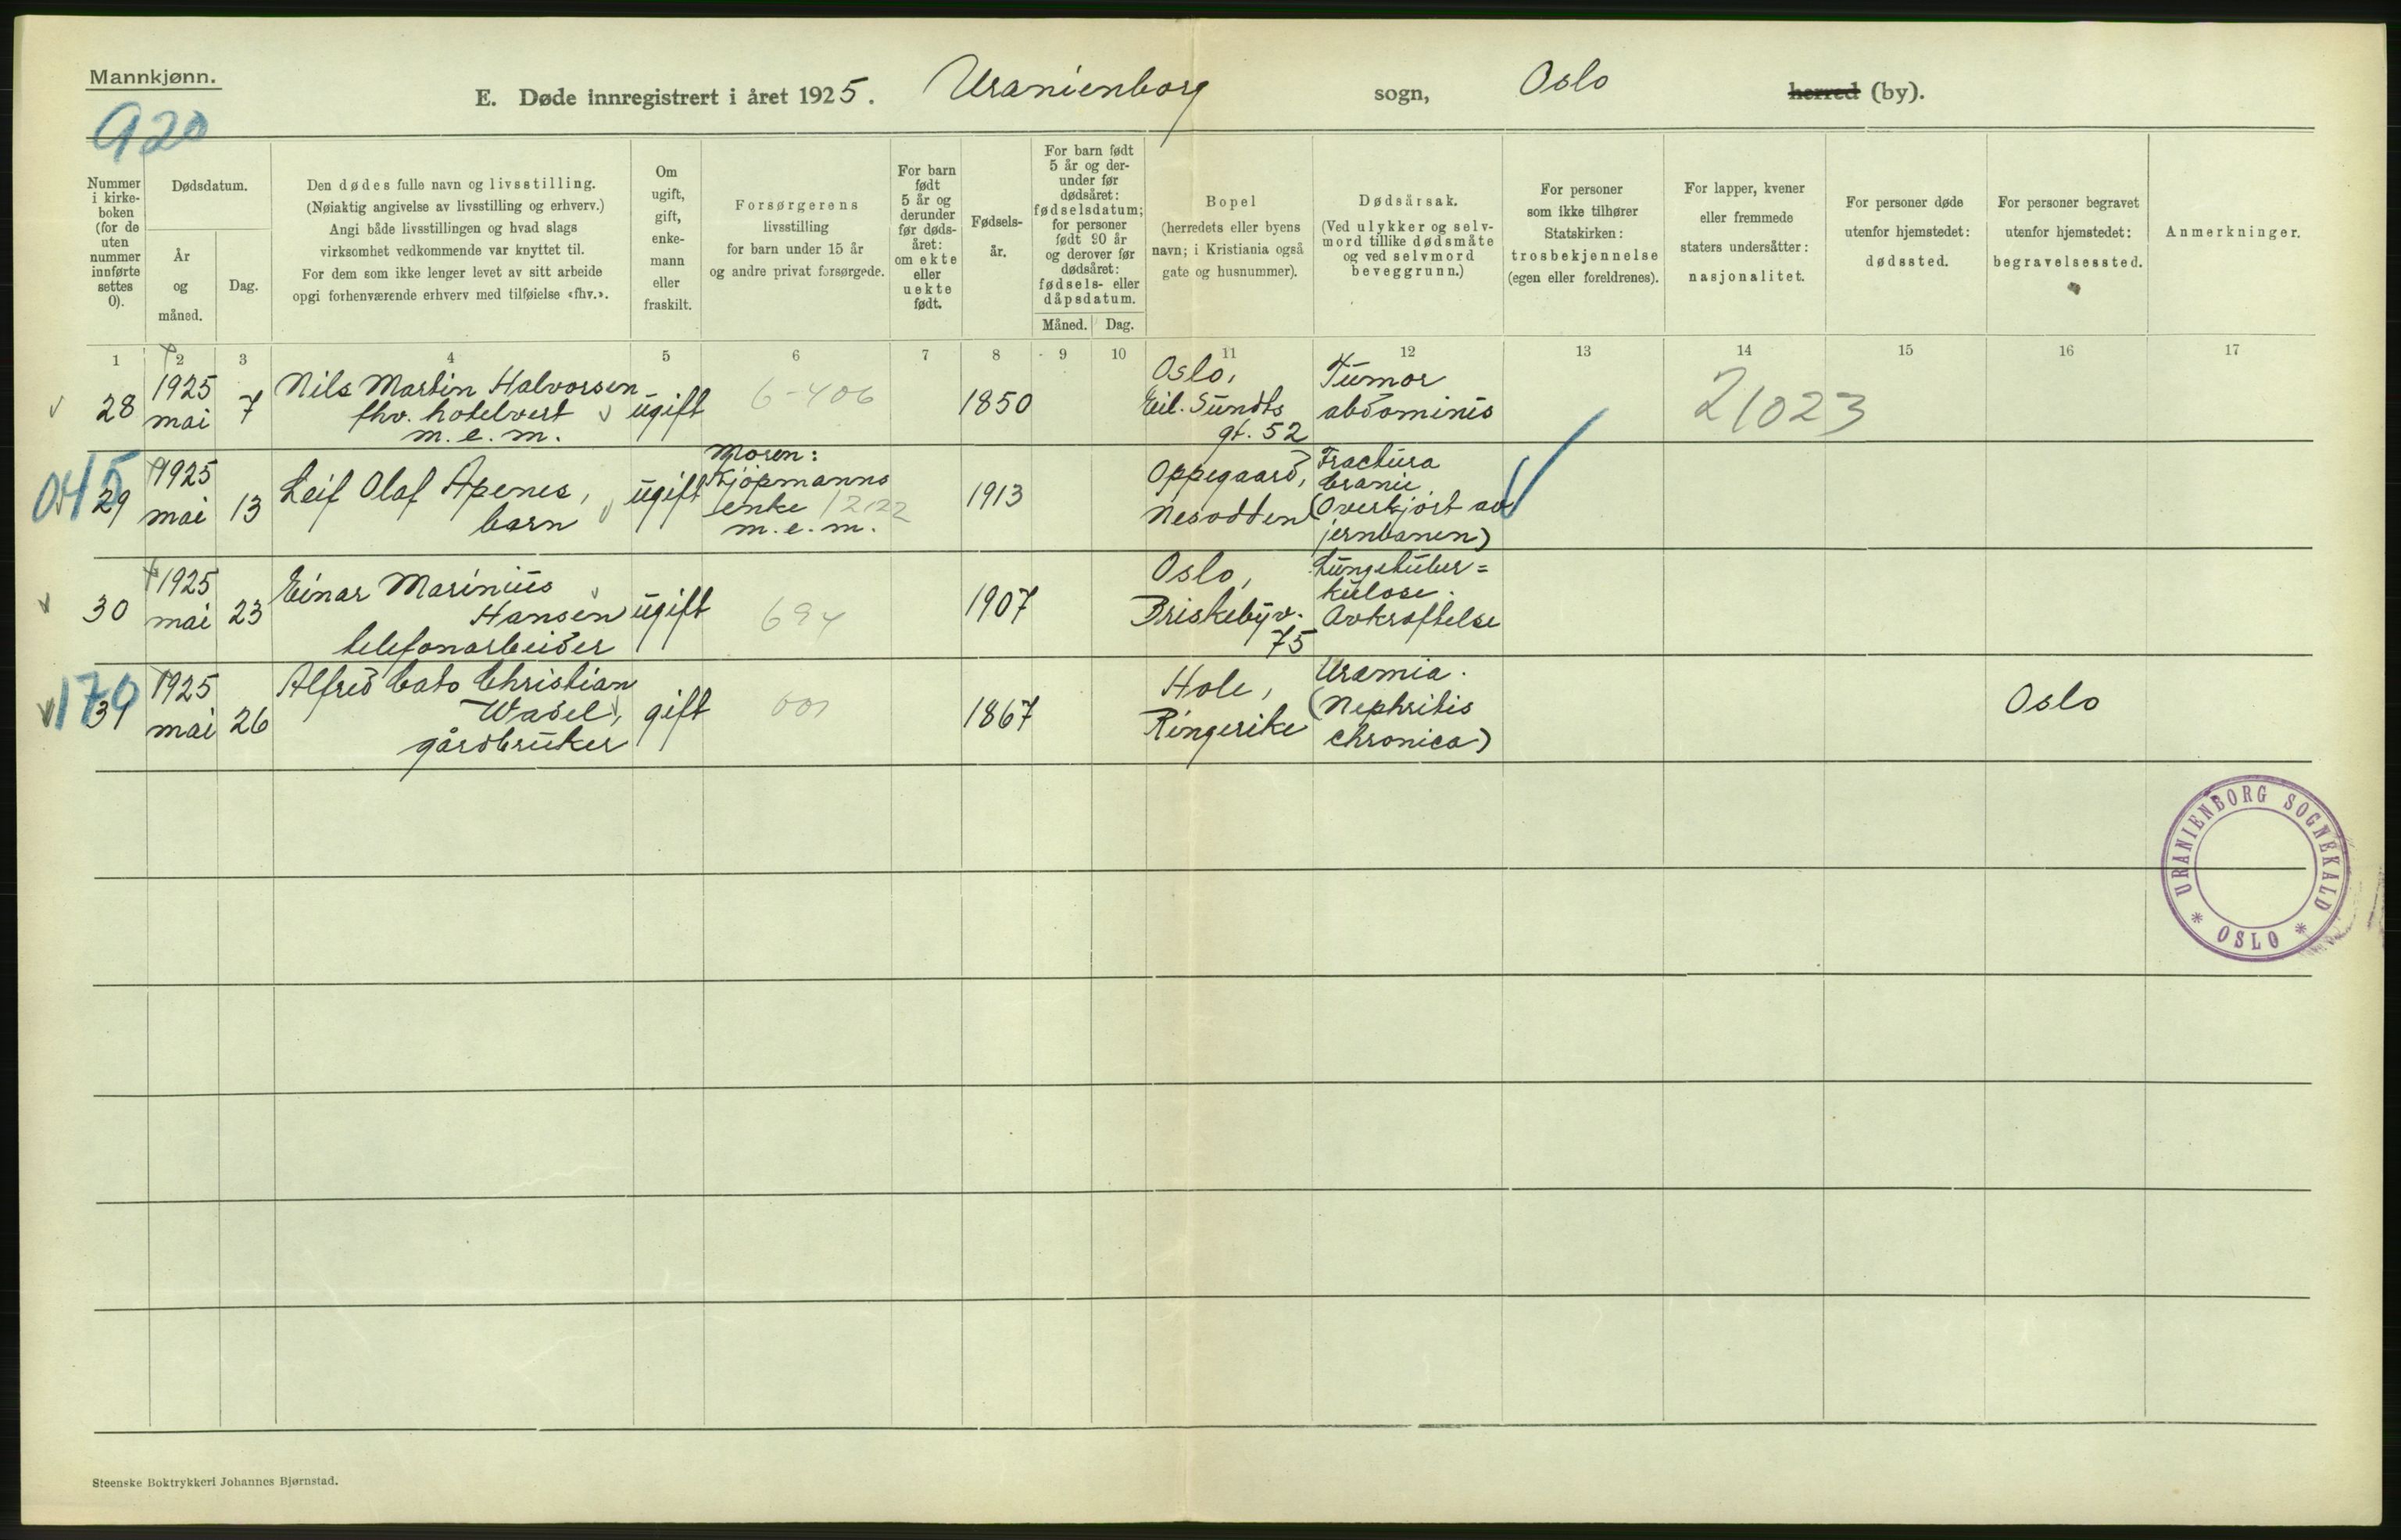 Mannkjønn.
E. Døde innregistrert i året 1925. Uranienborg sogn, Oslo herred (by).
920
Nummer i kirkeboken (for de uten nummer innførte settes 0).
Dødsdatum.
År og måned.
Dag.
Den dødes fulle navn og livsstilling.
(Nøiaktig angivelse av livsstilling og erhverv.)
Angi både livsstillingen og hvad slags
virksomhet vedkommende var knyttet til.
For dem som ikke lenger levet av sitt arbeide
opgi forhenværende erhverv med tilføielse «fhv.».
Om ugift, gift, enkemann eller fraskilt.
Forsørgerens
livsstilling
for barn under 15 år
og andre privat forsørgede.
For barn født 5 år og derunder før dødsåret: om ekte eller uekte født.
Fødselsår.
For barn født 5 år og derunder før dødsåret: fødselsdatum; for personer født 90 år og derover før dødsåret: fødsels- eller dåpsdatum.
Måned. Dag.
Bopel
(herredets eller byens
navn; i Kristiania også
gate og husnummer).
Dødsårsak.
(Ved ulykker og selvmord tillike dødsmåte
og ved selvmord
beveggrunn.)
For personer
som ikke tilhører
Statskirken:
trosbekjennelse
(egen eller foreldrenes).
For lapper, kvener
eller fremmede
staters undersåtter:
nasjonalitet.
For personer døde
utenfor hjemstedet:
dødssted.
For personer begravet
utenfor hjemstedet:
begravelsessted.
Anmerkninger.
1 2 3 4 5 6 7 8 9 10 11 12 13 14 15 16 17
28 1925 mai 7 Nils Martin Halvorsen
fhv. hotelvert
m.e.m.
ugift 6-406 1850
Oslo,
Eil. Sundts
gt. 52
Tumor
abdominis
21023
29 1925 mai 13 Leif Olaf Apenes,
barn
ugift
Moren:
Kjøpmanns
enke 12122
m.e.m.
1913
Oppegaard,
Nesodden
Fractura
Cranii
(Overkjørt av
jernbanen)
30 1925 mai 23 Einar Marinius
Hansen
telefonarbeider
ugift 694 1907
Oslo,
Briskebyv.
75
Lungetuber=
kulose.
Avkræftelse
170
31 1925 mai 26 Alfred Cato Christian
Wadel,
gårdbruker
gift 001 1867
Hole,
Ringerike
Uræmia.
(Nephritis
chronica)
Oslo
URANIENBORG SOGNEKALD * OSLO *
Steenske Boktrykkeri Johannes Bjørnstad.